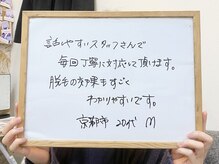 話しやすいスタッフさんで
毎回丁寧に対応して頂けます。
脱毛の効果もすごく
わかりやすいです。
京都市 20代 M